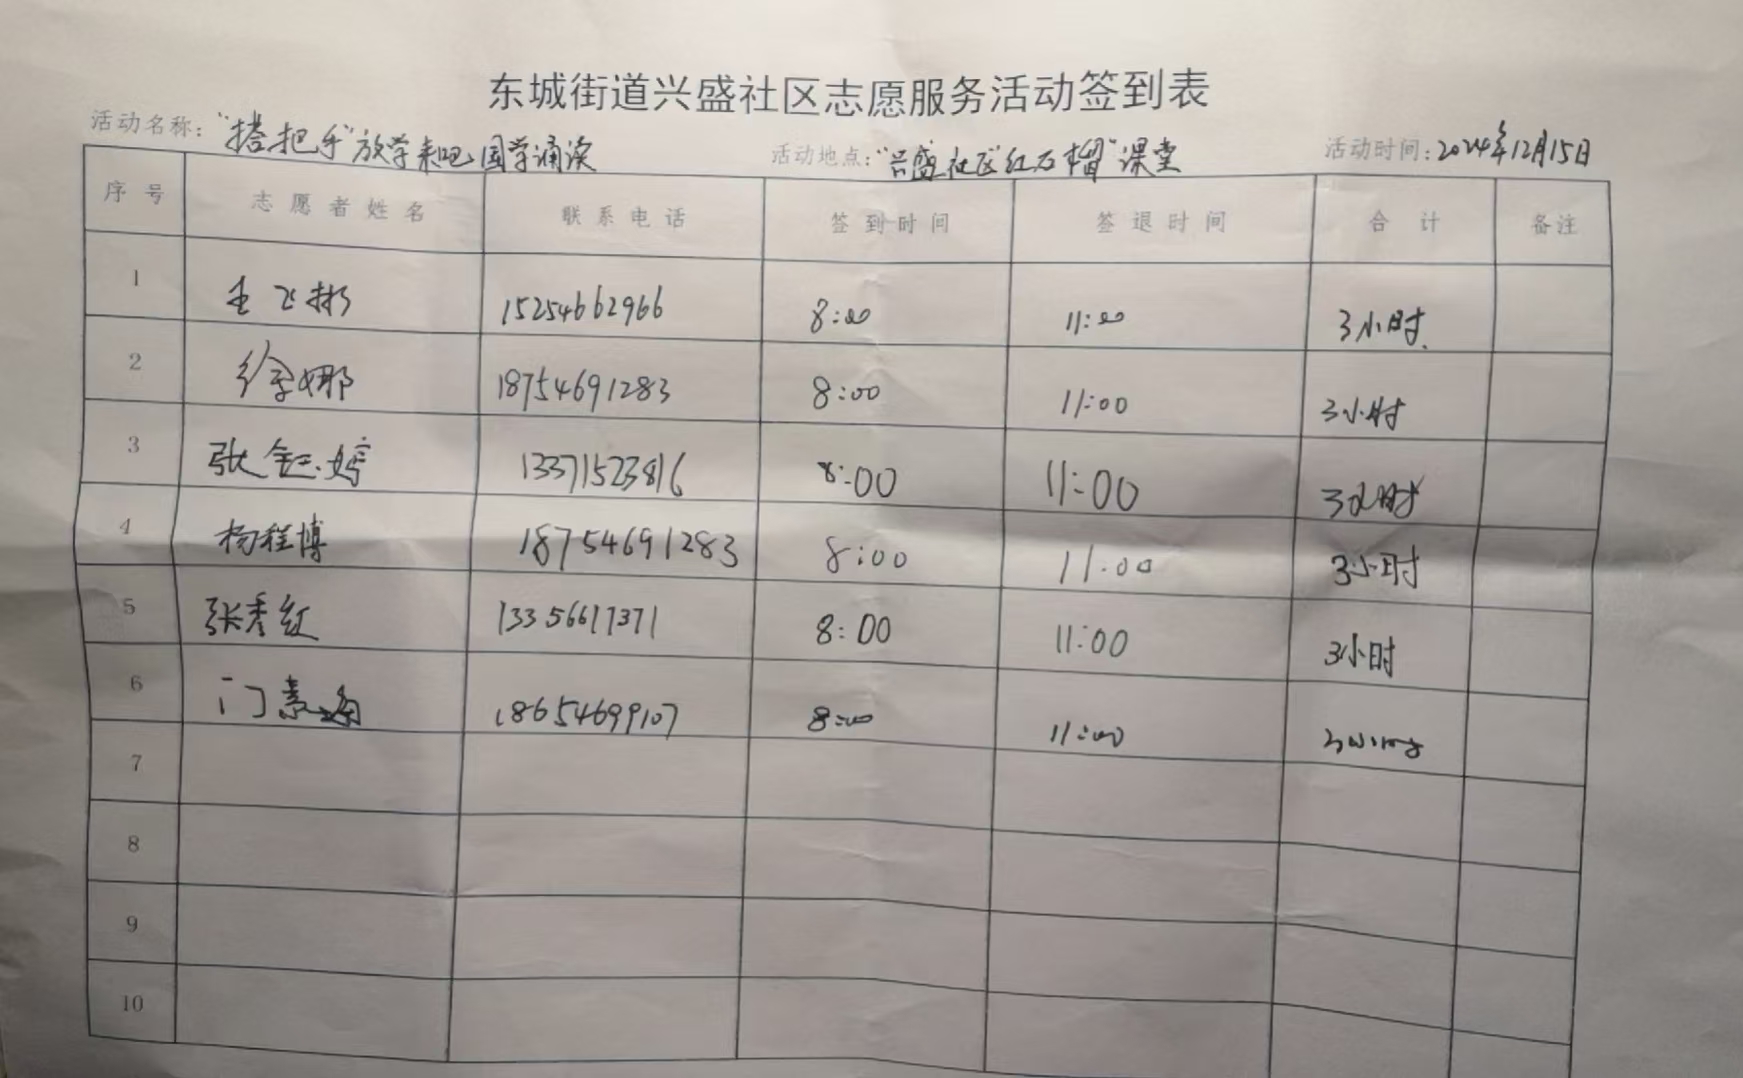 东城街道兴盛社区志愿服务活动签到表
活动名称：“搭把手”放学来吧国学诵读 活动地点：“兴盛社区“红石榴”课堂 活动时间：2024年12月15日
序号 志愿者姓名 联系电话 签到时间 签退时间 合计 备注
1 王飞彬 15254662966 8:00 11:00 3小时
2 徐娜 18754691283 8:00 11:00 3小时
3 张钰婷 13371523816 8:00 11:00 3小时
4 杨程博 18754691283 8:00 11:00 3小时
5 张秀红 13356617371 8:00 11:00 3小时
6 门素 18654699107 8:00 11:00 3小时
7
8
9
10